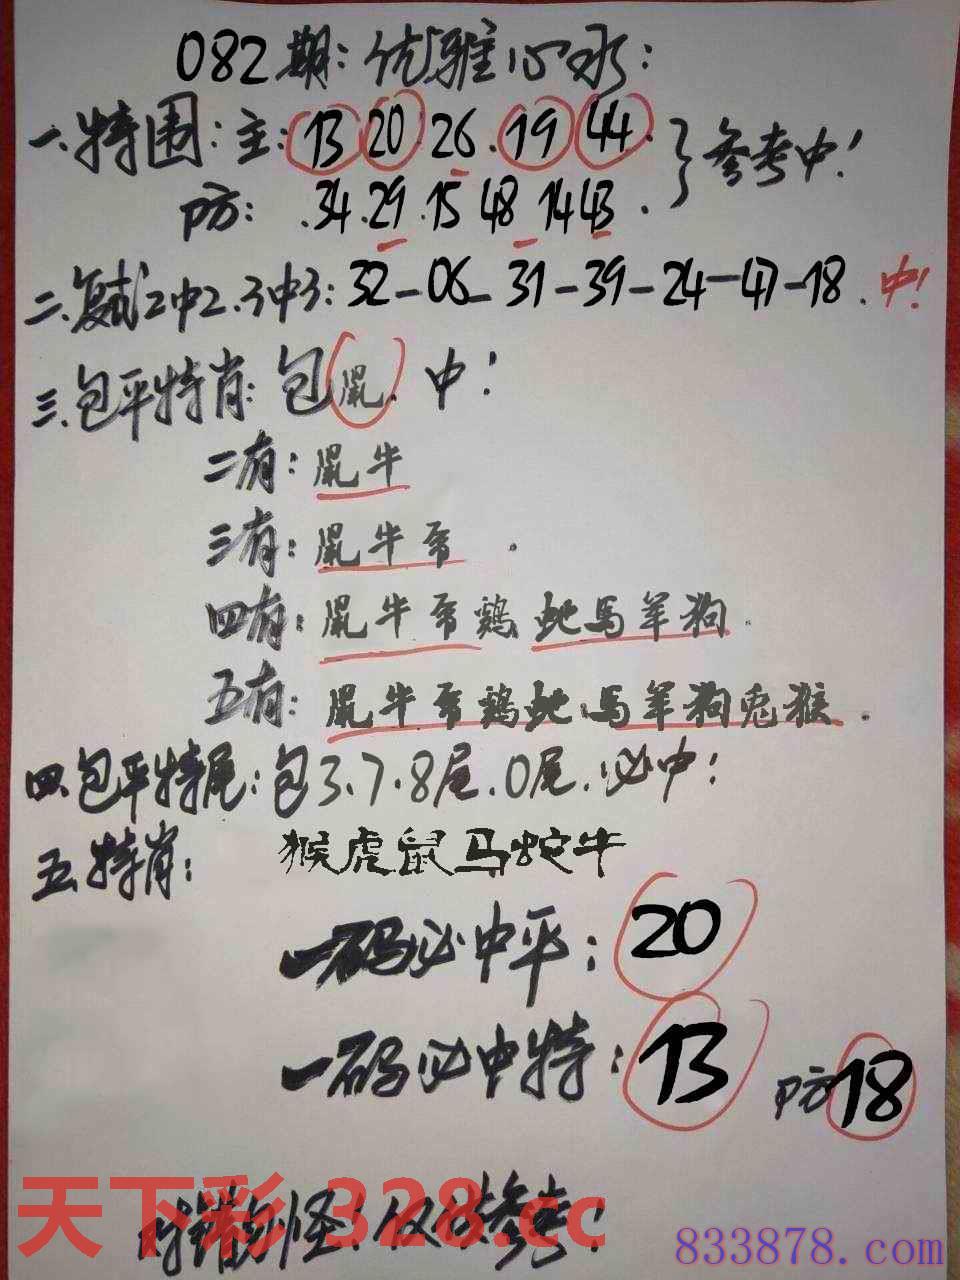 082期:优雅心水:
一.特围:主:13 20 26.19 44.
参考中!
防: .34.29.15 48 14 43.
二.复式2中2.3中3:32-06-31-39-24-47-18.中!
三.包平特肖:包鼠.中!
二有:鼠牛
三有:鼠牛帝.
四有:鼠牛帝鷄蛇馬羊狗.
五有:鼠牛帝鷄蛇馬羊狗兎猴.
四.包平特尾:包3.7.8尾.0尾.必中!
五.特肖: 猴虎鼠马蛇牛
一码必中平:20
一码必中特:13 防18
错勿怪!仅供参考!
天下彩 328.cc
833878.com